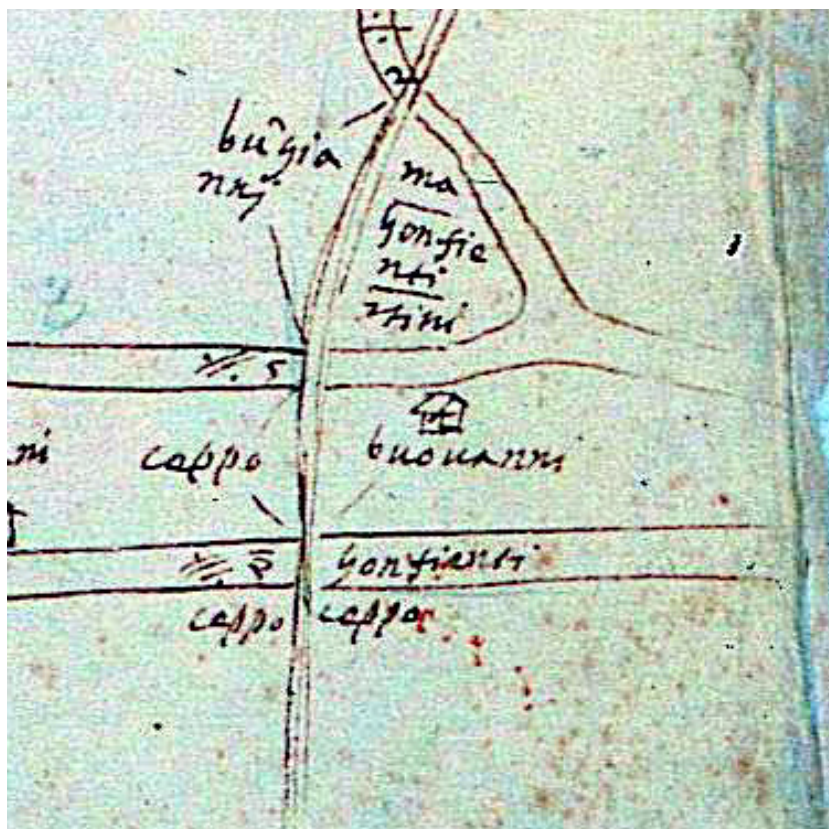 bu~gia
nnj
ma
gonfie
nti
ntini
5
ni
cappo
buonanni
gonfienti
cappo
cappo